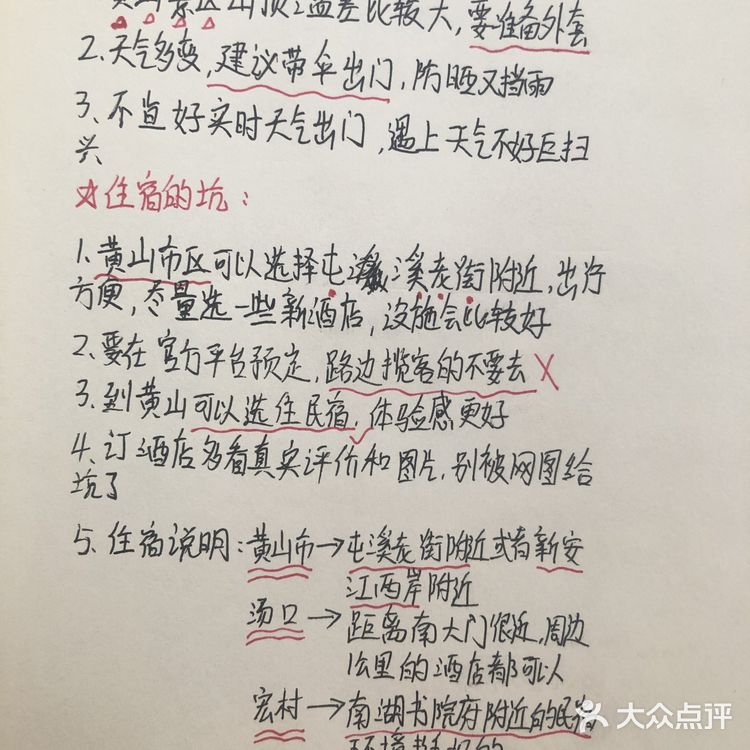 景区山顶温差比较大,要准备外套
2.天气多变,建议带伞出门,防晒又挡雨
3.不宜好实时天气出门,遇上天气不好巨扫
兴
住宿的坑:
1.黄山市区可以选择屯溪老街附近,出行
方便,尽量选一些新酒店,设施会比较好
2.要在官方平台预定,路边揽客的不要去
3.到黄山可以选住民宿,体验感更好
4.订酒店多看真实评价和图片,别被网图给
坑了
5.住宿说明:黄山市→屯溪老街附近或者新安
江两岸附近
汤口→距离南大门很近,周边
1公里的酒店都可以
宏村→南湖书院府附近的民宿
大众点评